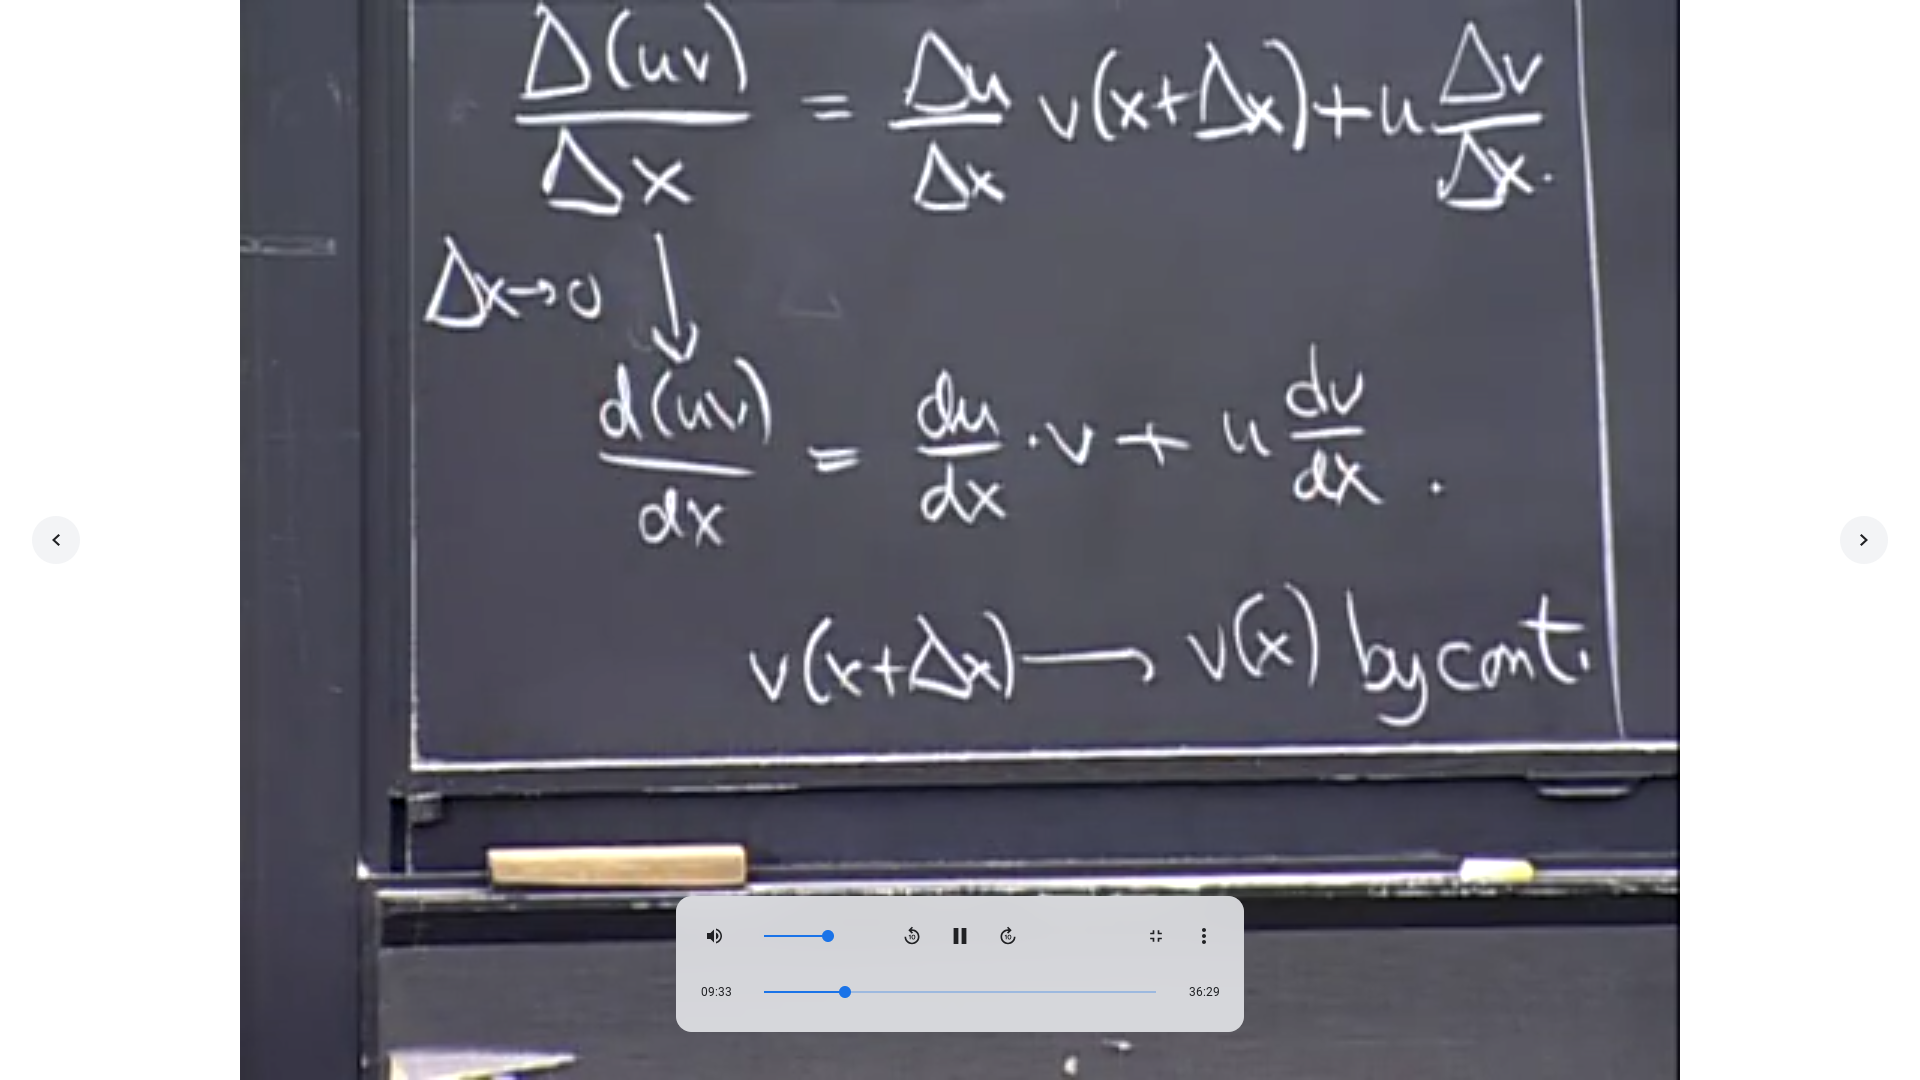 Δ(uv)/Δx = Δu/Δx v(x+Δx)+u Δv/Δx.
Δx→0 ↓
d(uv)/dx = du/dx ·v + u dv/dx .
v(x+Δx) → v(x) by cont.
10 10
09:33 36:29